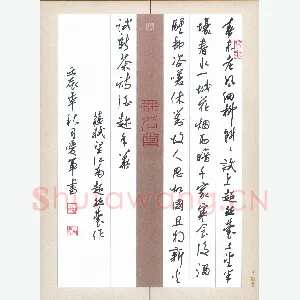 春未老风细柳斜斜试上超然台上看半
壕春水一城花烟雨暗千家寒食后酒
醒却咨嗟休对故人思故国且将新火
试新茶诗酒趁年华
苏轼望江南超然台作
壬辰年秋月爱军书
Shufawang.CN